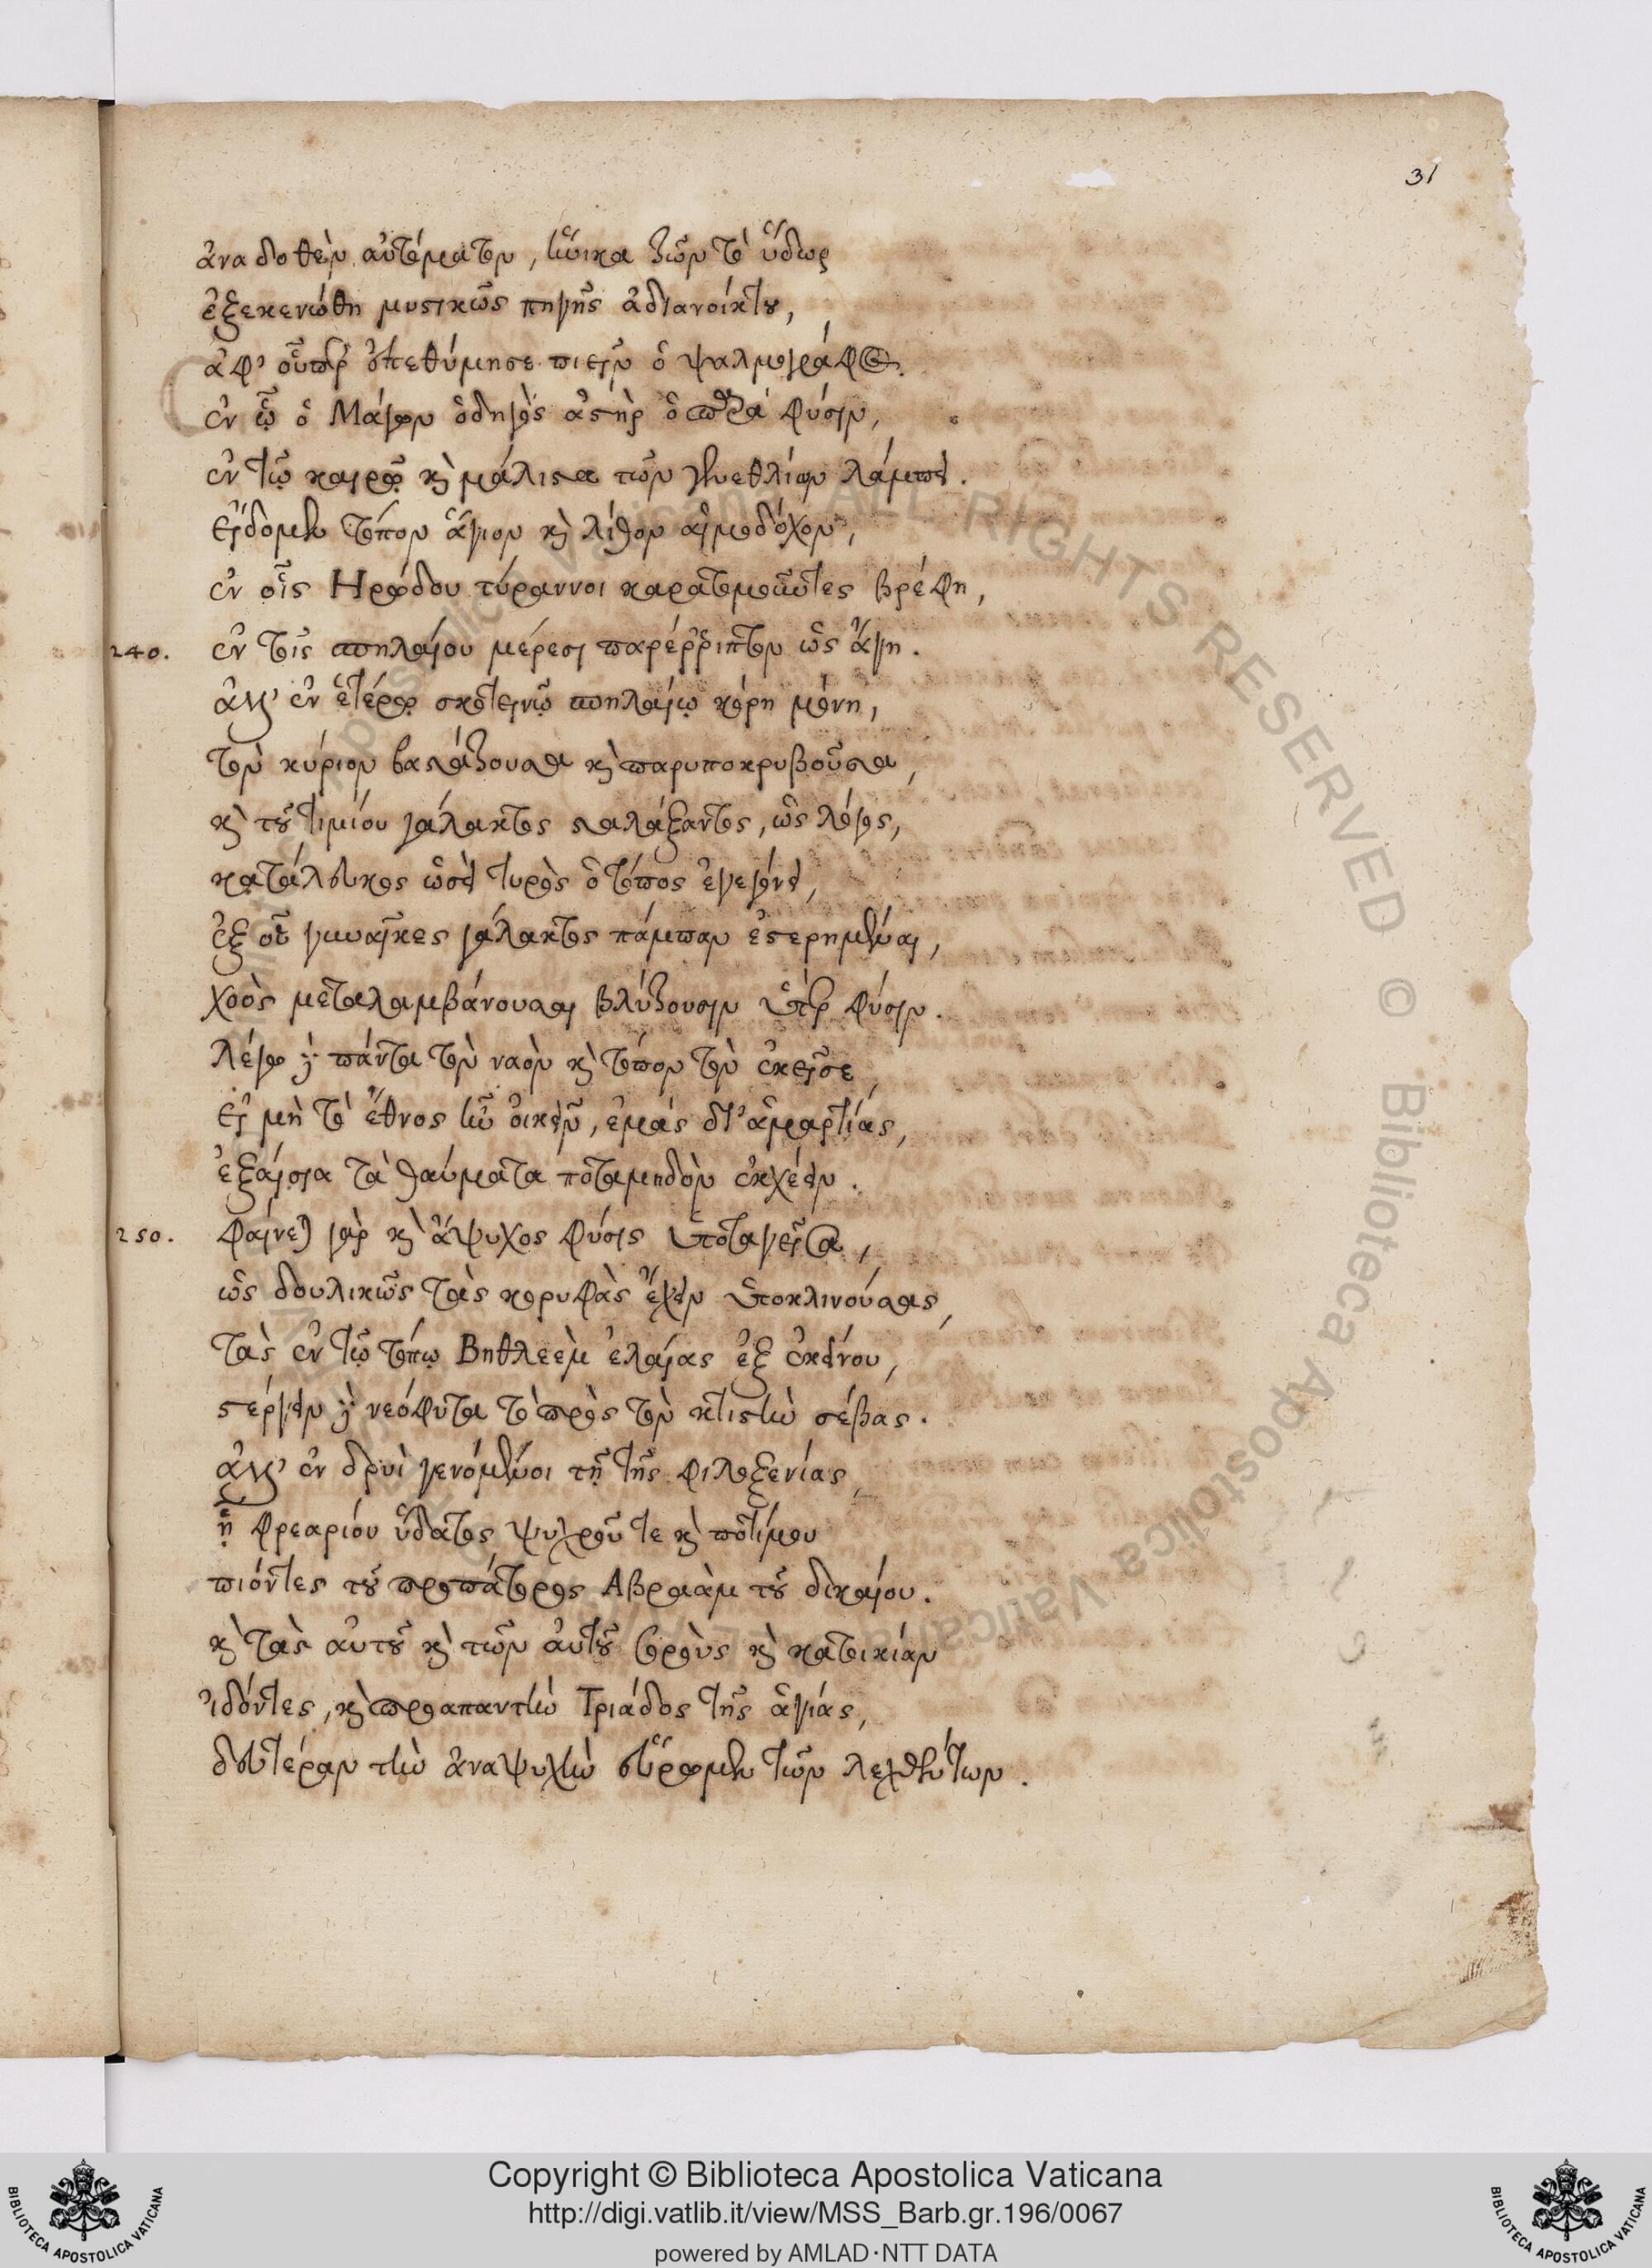 31
ἀναδοθὲν αὐτόματον, ἡνίκα ζῶν τὸ ὕδωρ
ἐξεκενώθη μυστικῶς πηγῆς ἀδιανοίκτου,
ἀφ' οὗπερ ἐπεθύμησε πιεῖν ὁ ψαλμογράφος.
ἐν ᾧ ὁ Μάγων ὁδηγὸς ἀστὴρ ὁ παρὰ φύσιν,
ἐν τῷ καιρῷ καὶ μάλιστα τῶν γενεθλίων λάμπει.
Εἴδομεν τόπον ἅγιον καὶ λίθον αἱμοδόχον,
ἐν οἷς Ηρώδου τύραννοι καρατομοῦντες βρέφη,
240. ἐν τοῖς σπηλαίου μέρεσι παρέρῥιπτον ὡς ἄγη.
ἀλλ' ἐν ἑτέρῳ σκοτεινῷ σπηλαίῳ κόρη μόνη,
τὸν κύριον βαστάζουσα καὶ παρυποκρυβοῦσα,
καὶ τοῦ τιμίου γάλακτος σταλάξαντος, ὡς λόγος,
κατάλευκος ὡσεὶ τυρὸς ὁ τόπος ἐγεγόνει,
ἐξ οὗ γυναῖκες γάλακτος πάμπαν ἐστερημέναι,
χοὸς μεταλαμβάνουσαι βλύζουσιν ὑπὲρ φύσιν.
λέγω δὲ πάντα τὸν ναὸν καὶ τόπον τὸν ἐκεῖσε,
εἰ μὴ τὸ ἔθνος ἦν οἰκεῖν, ἐμὰς δι' ἁμαρτίας,
ἐξαίσια τὰ θαύματα ποταμηδὸν ἐκχέειν.
250. φαίνεται γὰρ καὶ ἄψυχος φύσις ὑποταγεῖσα,
ὡς δουλικῶς τὰς κορυφὰς ἔχειν ὑποκλινούσας,
τὰς ἐν τῷ τόπῳ Βηθλεὲμ ἐλαίας ἐξ ἐκείνου,
στέργειν δὲ νεόφυτα τὸ πρὸς τὸν κτιστὴν σέβας.
ἀλλ' ἐν δρυῒ γενόμενοι τῇ τῆς φιλοξενίας,
ᾗ φρεαρίου ὕδατος ψυχροῦ τε καὶ ποτίμου
πιόντες τοῦ προπάτορος Αβραὰμ τοῦ δικαίου.
καὶ τὰς αὐτοῦ καὶ τῶν αὐτοῦ σοροὺς καὶ κατοικίαν
ἰδόντες, καὶ προαπαντὴν Τριάδος τῆς ἁγίας,
δευτέραν τὴν ἀναψυχὴν εὕρομεν τῶν λεχθέντων.
Copyright © Biblioteca Apostolica Vaticana
http://digi.vatlib.it/view/MSS_Barb.gr.196/0067
powered by AMLAD·NTT DATA
BIBLIOTECA APOSTOLICA VATICANA
BIBLIOTECA APOSTOLICA VATICANA